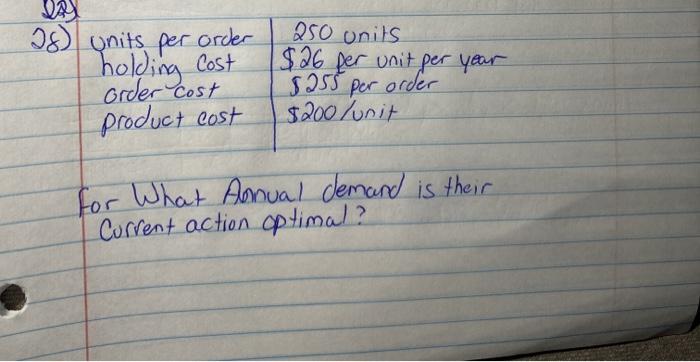 28) units per order 250 units
holding cost $26 per unit per year
order cost $255 per order
product cost $200/unit
for What Annual demand is their
Current action optimal?